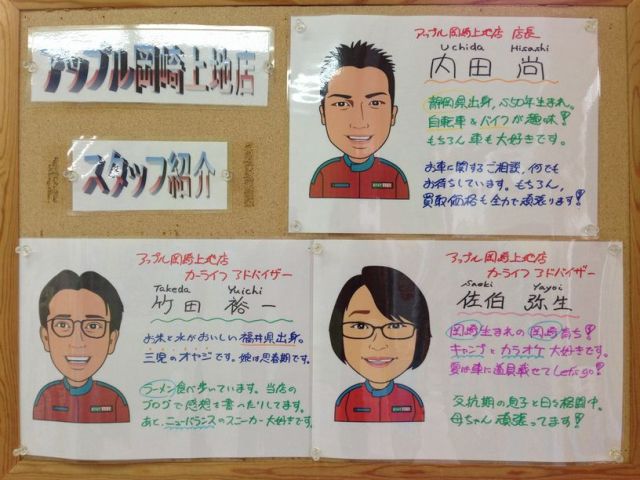 アップル岡崎上地店
スタッフ紹介
アップル岡崎上地店 店長
Uchida Hisashi
内田 尚
静岡県出身、S50年生まれ。
自転車&バイクが趣味!
もちろん車も大好きです。
お車に関するご相談、何でも
お待ちしています。もちろん、
買取価格も全力で頑張ります!
アップル岡崎上地店
カーライフアドバイザー
Takeda Yuichi
竹田 裕一
お米と水がおいしい福井県出身。
三児のオヤジです。娘は思春期です。
ラーメン食べ歩いています。当店の
ブログで感想を書いたりしてます。
あと、ニューバランスのスニーカー大好きです。
アップル岡崎上地店
カーライフアドバイザー
Saeki Yayoi
佐伯 弥生
岡崎生まれの岡崎育ち!
キャンプとカラオケ大好きです。
夏は車に道具載せてLet's go!
反抗期の息子と日々格闘中。
母ちゃん頑張ってます!